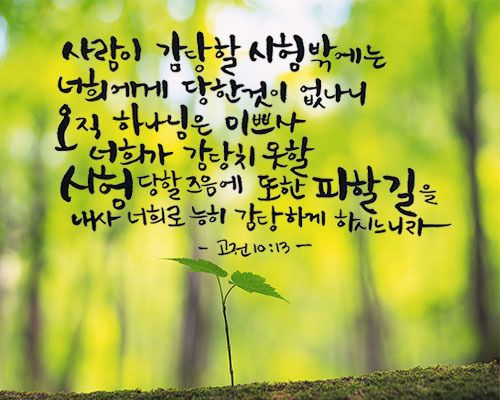 사람이 감당할 시험밖에는
너희에게 당한것이 없나니
오직 하나님은 미쁘사
너희가 감당치 못할
시험 당할 즈음에 또한 피할길을
내사 너희로 능히 감당하게 하시느니라
- 고전 10:13 -